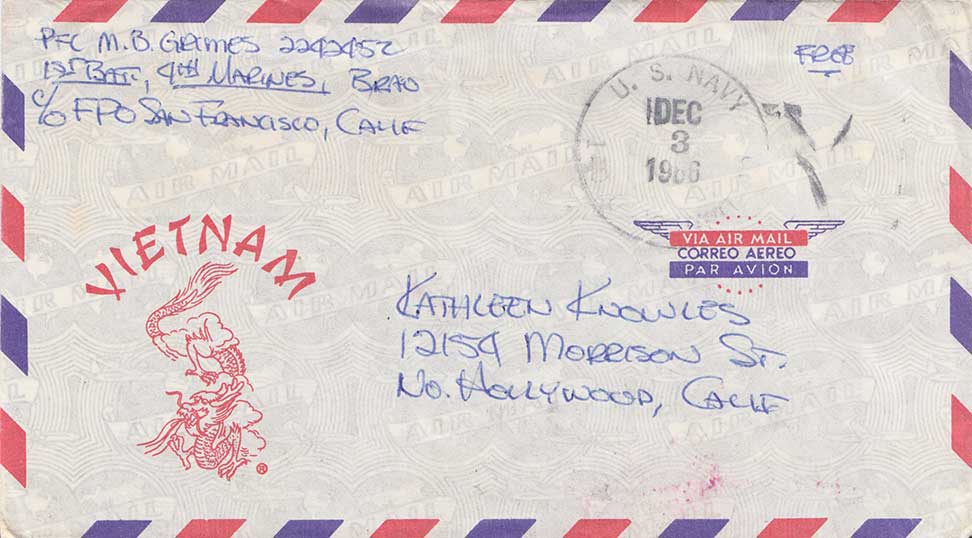 PFC M.B. GRIMES 2242452
1ST BATT, 4TH MARINES,
C/O FPO SAN FRANCISCO, CALIF
FREE
U. S. NAVY
DEC
3
1966
VIA AIR MAIL
CORREO AEREO
PAR AVION
VIETNAM
®
KATHLEEN KNOWLES
12154 MORRISON ST.
NO. HOLLYWOOD, CALIF
AIR MAIL
AIR MAIL
AIR MAIL
AIR MAIL